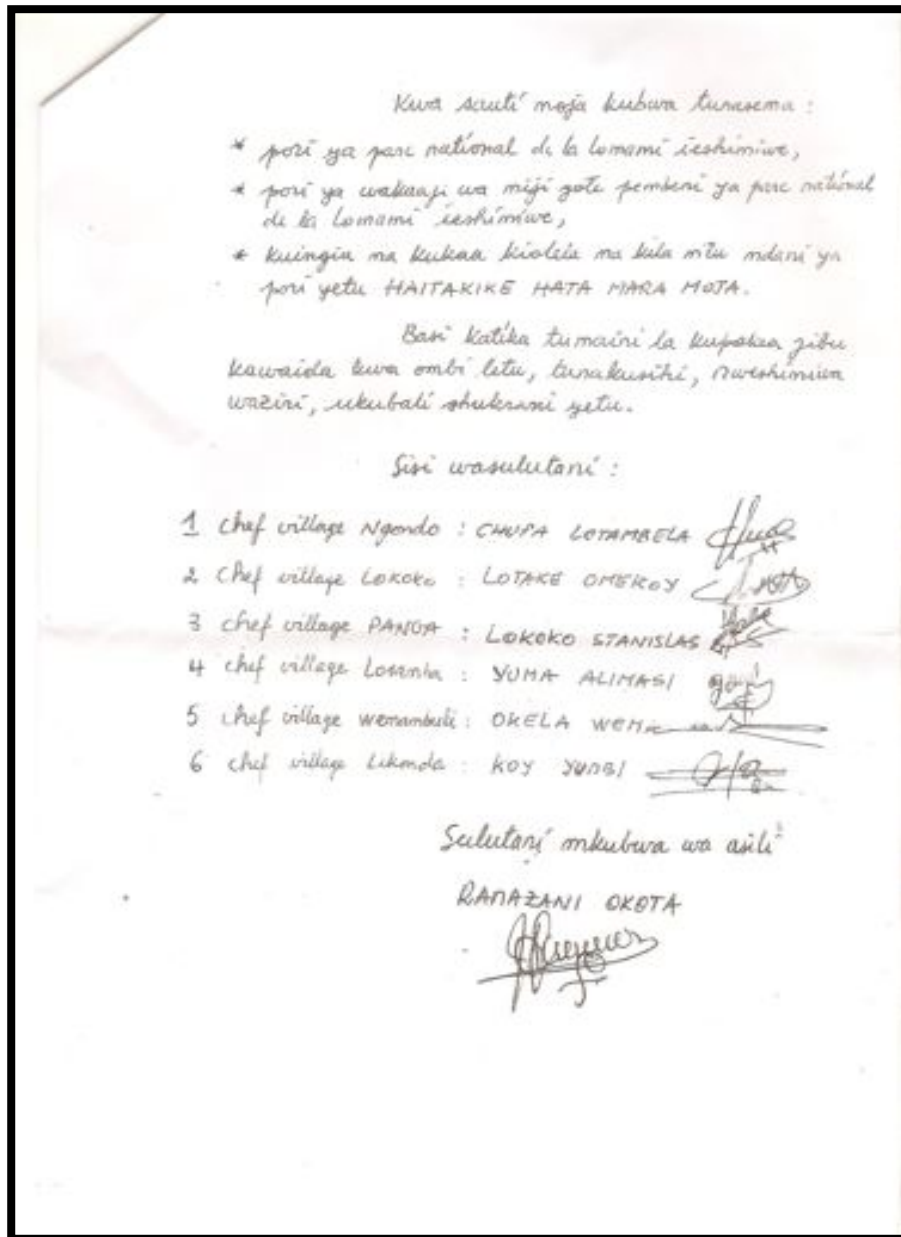 Kwa sauti moja kubwa tunasema :
* pori ya parc national de la Lomami ieshimiwe,
* pori ya wakaaji wa miji yote pembeni ya parc national
de la Lomami ieshimiwe,
* kuingia na kukaa kiolela na kila mtu ndani ya
pori yetu HAITAKIKE HATA MARA MOJA.
Basi katika tumaini la kupokaa jibu
kawaida kwa ombi letu, tunakusihi, mweshimiwa
waziri, ukubali shukrani yetu.
Sisi wasulutani :
1 Chef village Ngondo : CHUPA LOTAMBELA
2 Chef village LOKOKO : LOTAKE OMEKOY
3 chef village PANGA : LOKOKO STANISLAS
4 chef village : YUMA ALIMASI
5 chef village wenambuli : OKELA
6 chef village Likonda : KOY YUMBI
Sulutani mkubwa wa asili
RAMAZANI OKOTA